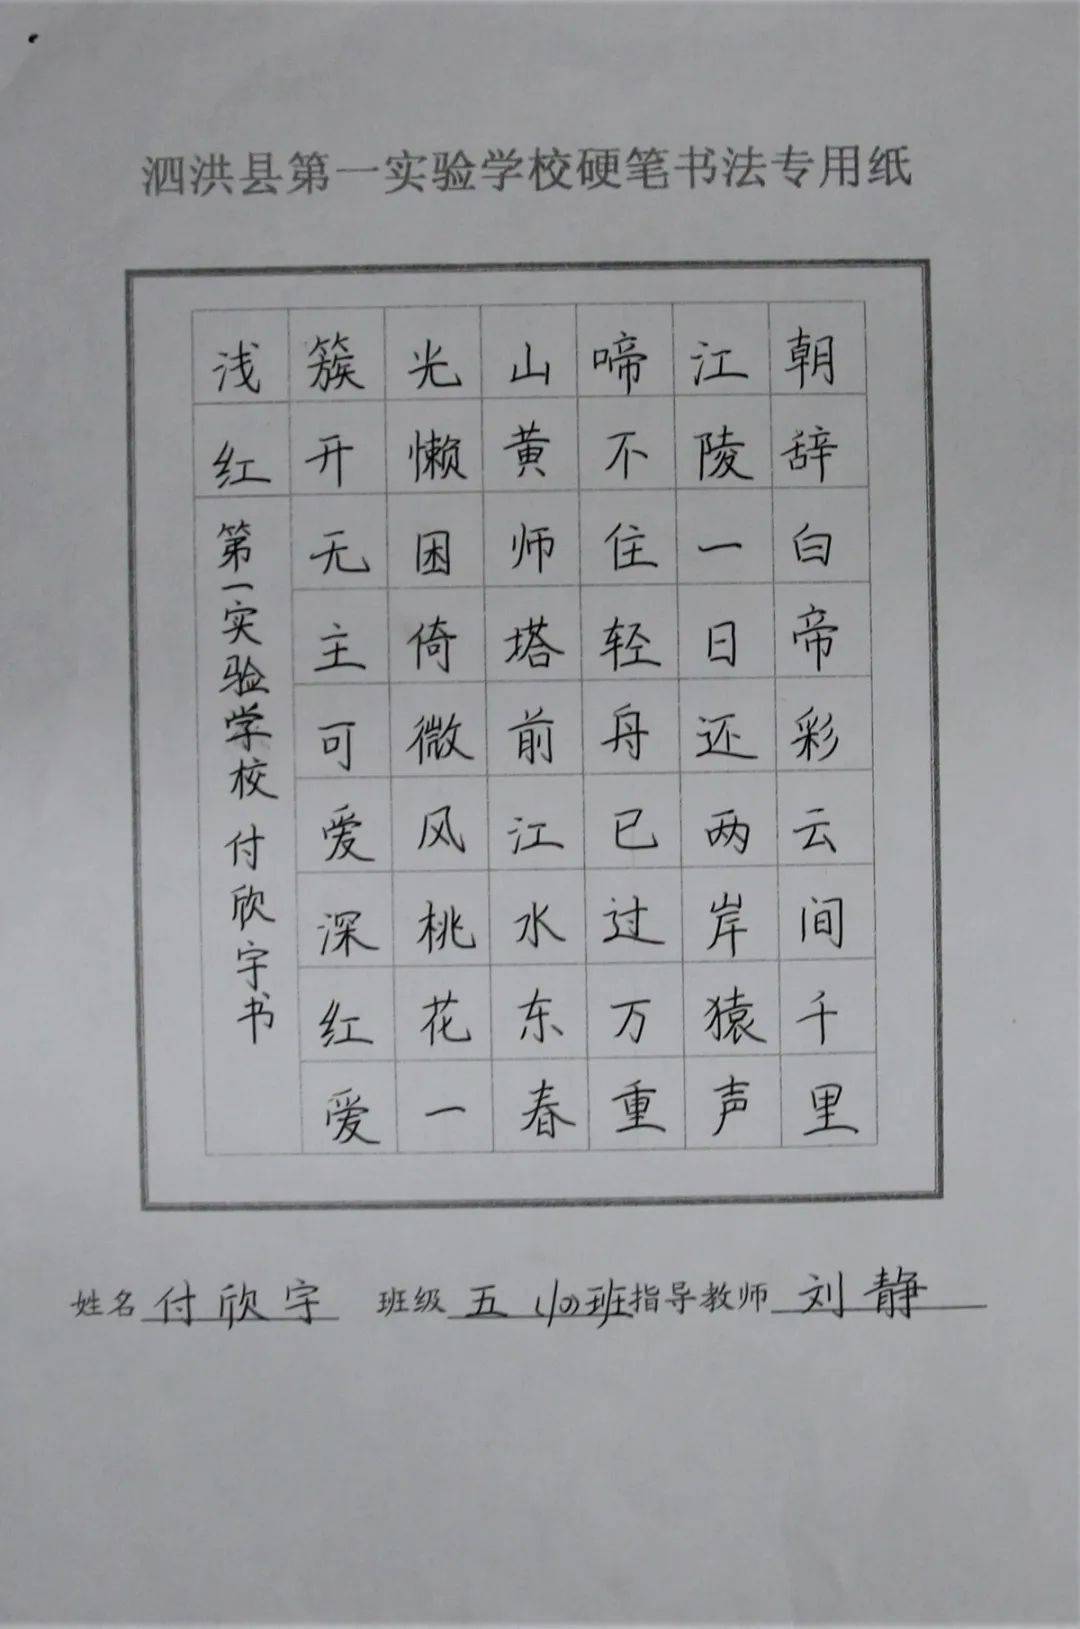 泗洪县第一实验学校硬笔书法专用纸
朝辞白帝彩云间千里
江陵一日还两岸猿声
啼不住轻舟已过万重
山黄师塔前江水东春
光懒困倚微风桃花一
簇开无主可爱深红爱
浅红
第一实验学校 付欣宇书
姓名 付欣宇 班级 五(10)班 指导教师 刘静